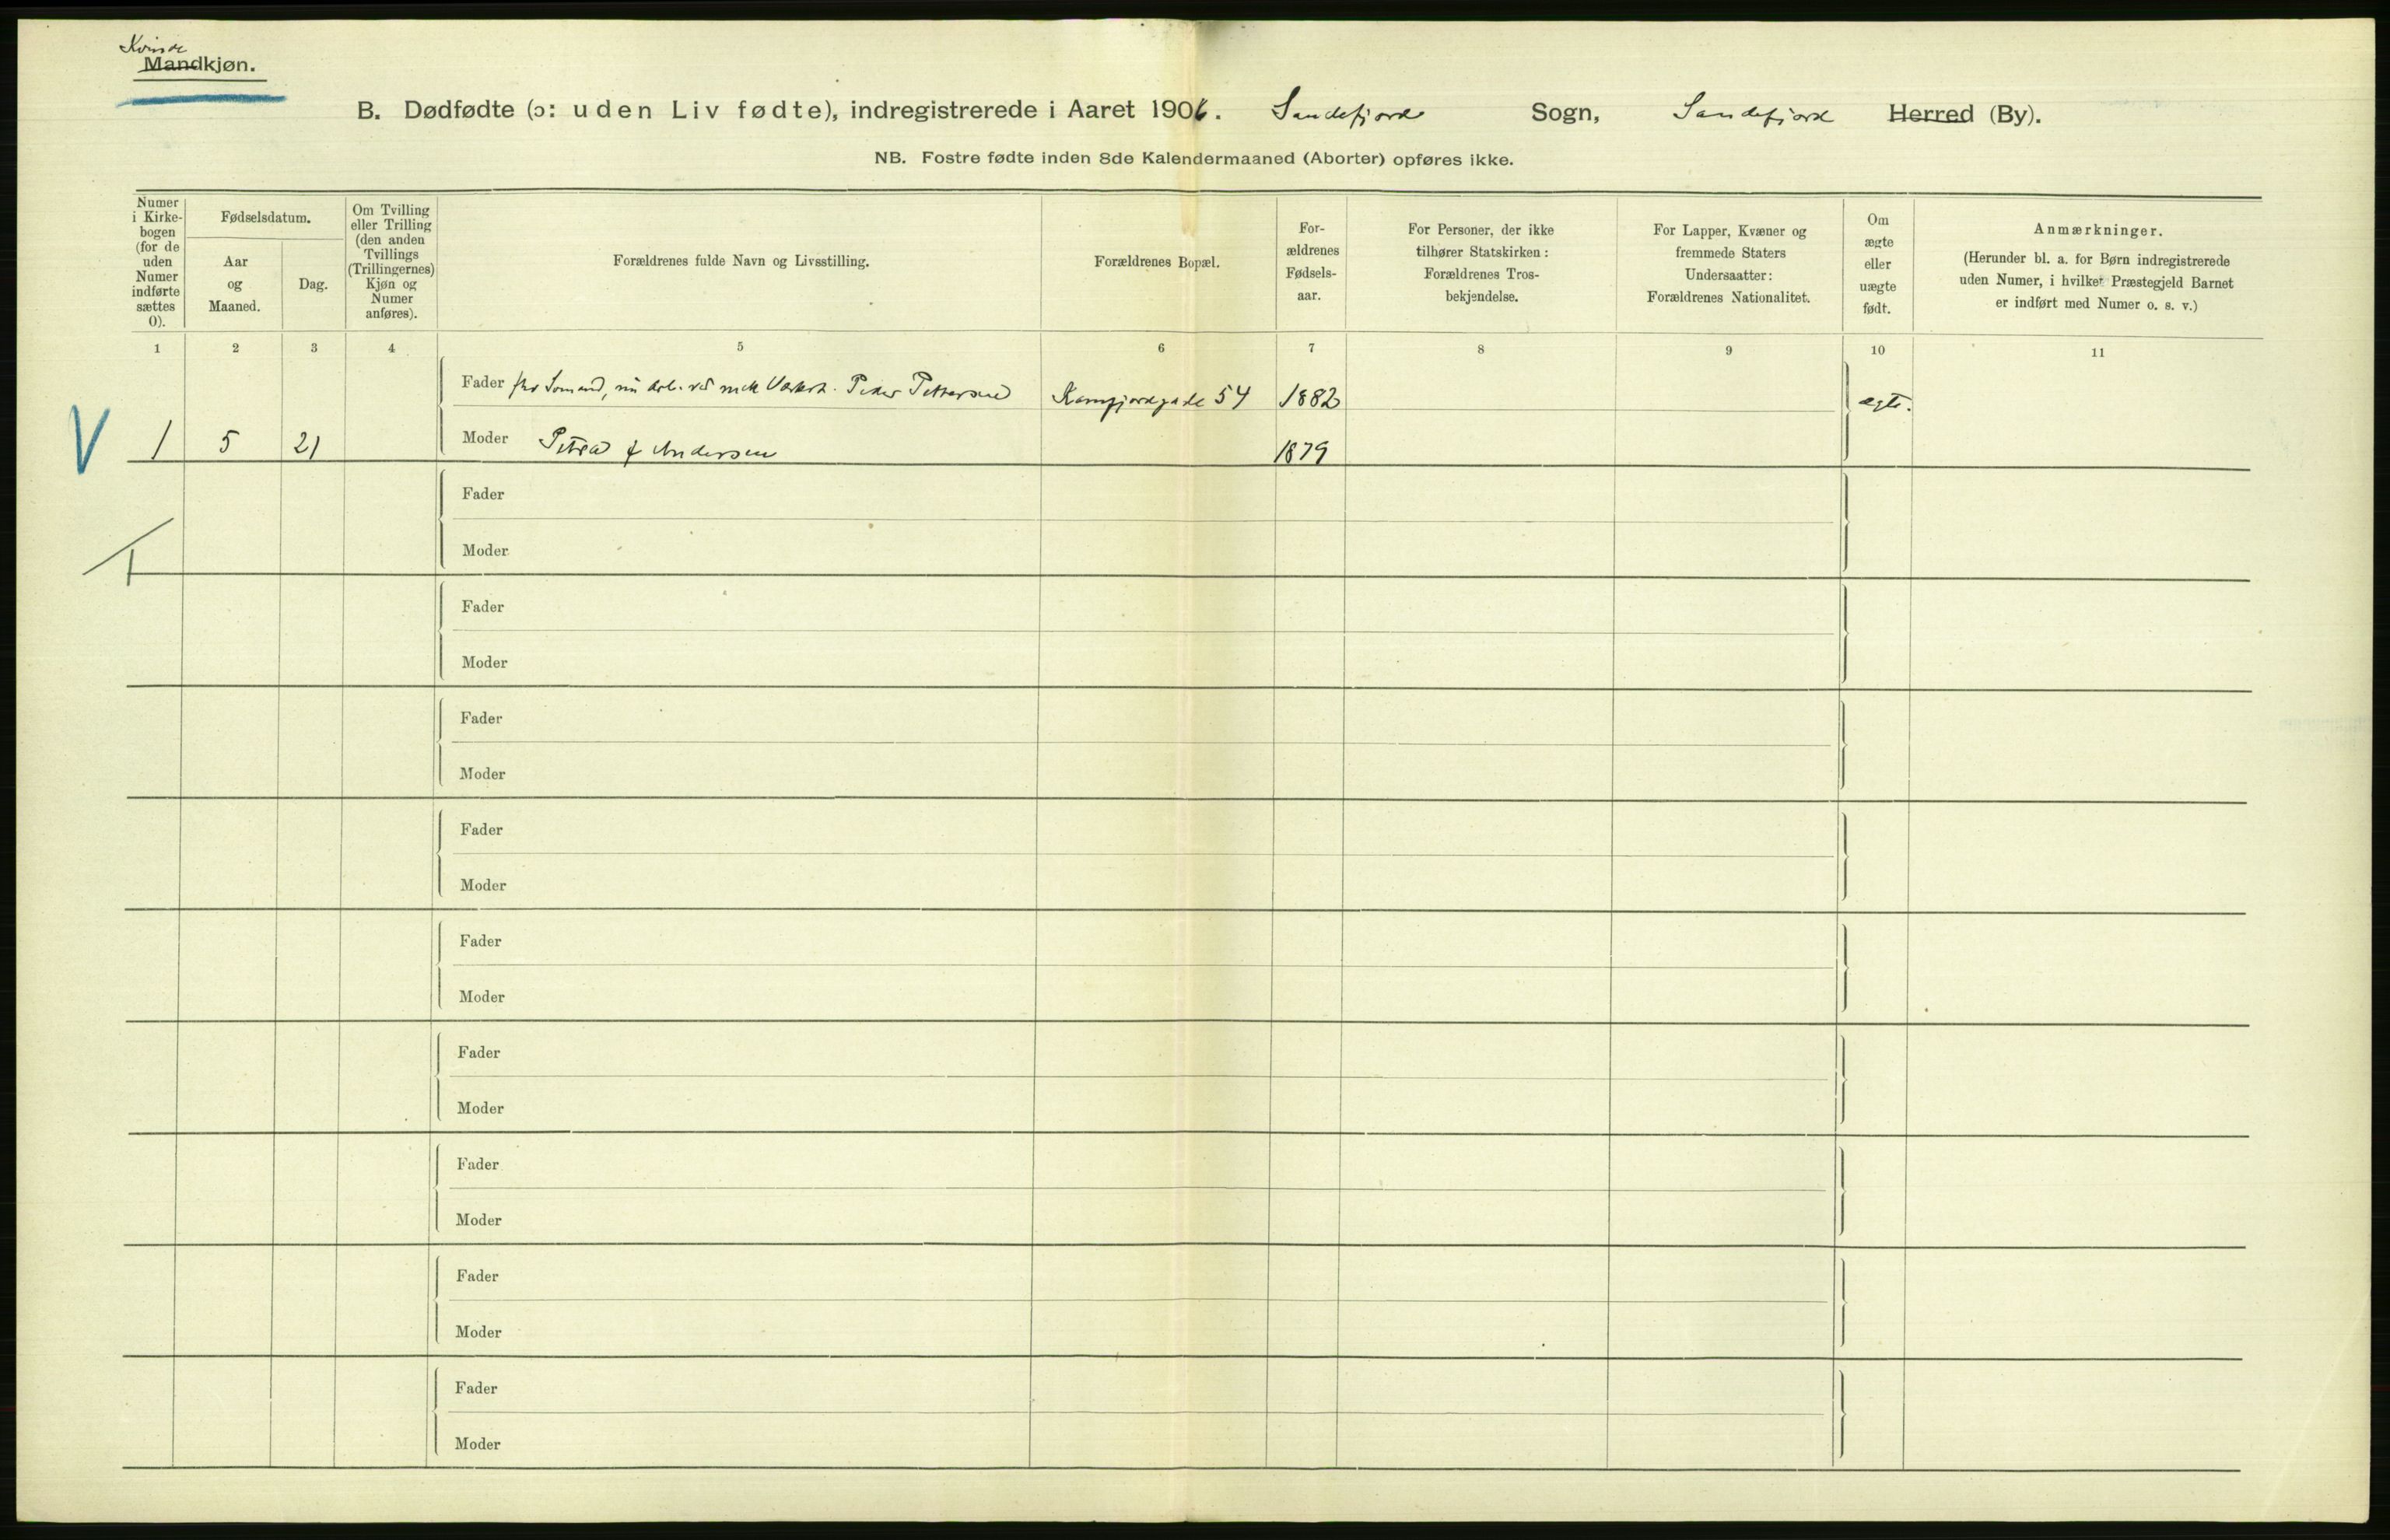 Kvinde
Mandkjøn.
B. Dødfødte (ɔ: uden Liv fødte), indregistrerede i Aaret 1906. Sandefjord Sogn, Sandefjord Herred (By).
NB. Fostre fødte inden 8de Kalendermaaned (Aborter) opføres ikke.
Numer
i Kirke-
bogen
(for de
uden
Numer
indførte
sættes
0).
Fødselsdatum.
Aar
og
Maaned.
Dag.
Om Tvilling
eller Trilling
(den anden
Tvillings
(Trillingernes)
Kjøn og
Numer
anføres).
Forældrenes fulde Navn og Livsstilling.
Forældrenes Bopæl.
For-
ældrenes
Fødsels-
aar.
For Personer, der ikke
tilhører Statskirken:
Forældrenes Tros-
bekjendelse.
For Lapper, Kvæner og
fremmede Staters
Undersaatter:
Forældrenes Nationalitet.
Om
ægte
eller
uægte
født.
Anmærkninger.
(Herunder bl. a. for Børn indregistrerede
uden Numer, i hvilket Præstegjeld Barnet
er indført med Numer o. s. v.)
1 2 3 4 5 6 7 8 9 10 11
Fader før Sømand, nu arb. ved mek Værkst. Peder Pettersen 54 1882 ægte.
V 1 5 21 Moder Petra f Andersen 1879
Fader
Moder
Fader
Moder
Fader
Moder
Fader
Moder
Fader
Moder
Fader
Moder
Fader
Moder
Fader
Moder
Fader
Moder